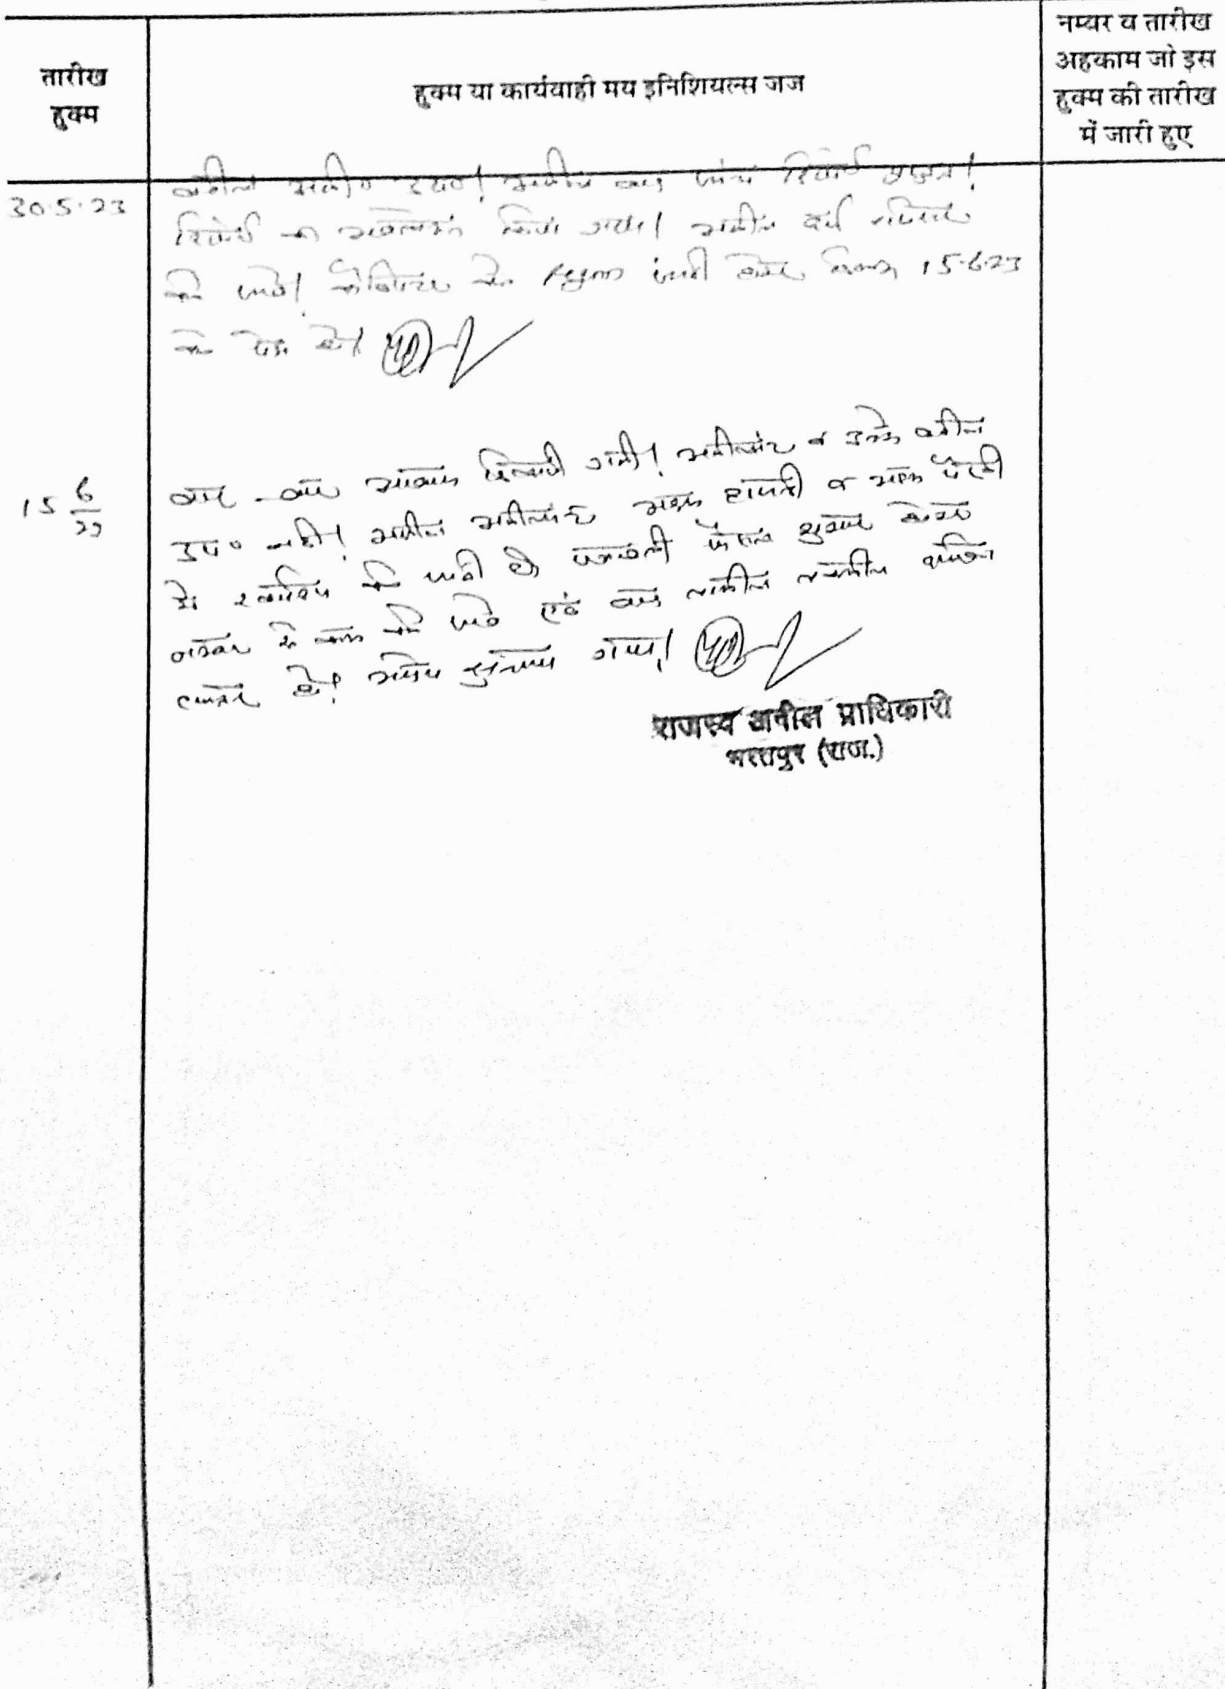 तारीख
हुक्म
हुक्म या कार्यवाही मय इनिशियल्स जज
नम्बर व तारीख
अहकाम जो इस
हुक्म की तारीख
में जारी हुए
30.5.23
वकील अपी० उप०। अपील जांच रिपोर्ट प्रस्तुत।
रिपोर्ट का अवलोकन किया गया। अपील दर्ज रजिस्टर
की जावे। जारी दिनांक 15.6.23
को पेश हो।
15 6/23
बार - बार आवाज दिलवायी गयी। अपीलांट व उनके वकील
उप० नहीं। अपील अपीलांट अदम हाजरी व अदम पैरवी
में खारिज की जाती है। पत्रावली फैसल शुमार होकर
नम्बर से कम की जावे एवं बाद तकमील दाखिल
दफ्तर हो। आदेश सुनाया गया।
राजस्व अपील प्राधिकारी
भरतपुर (राज.)